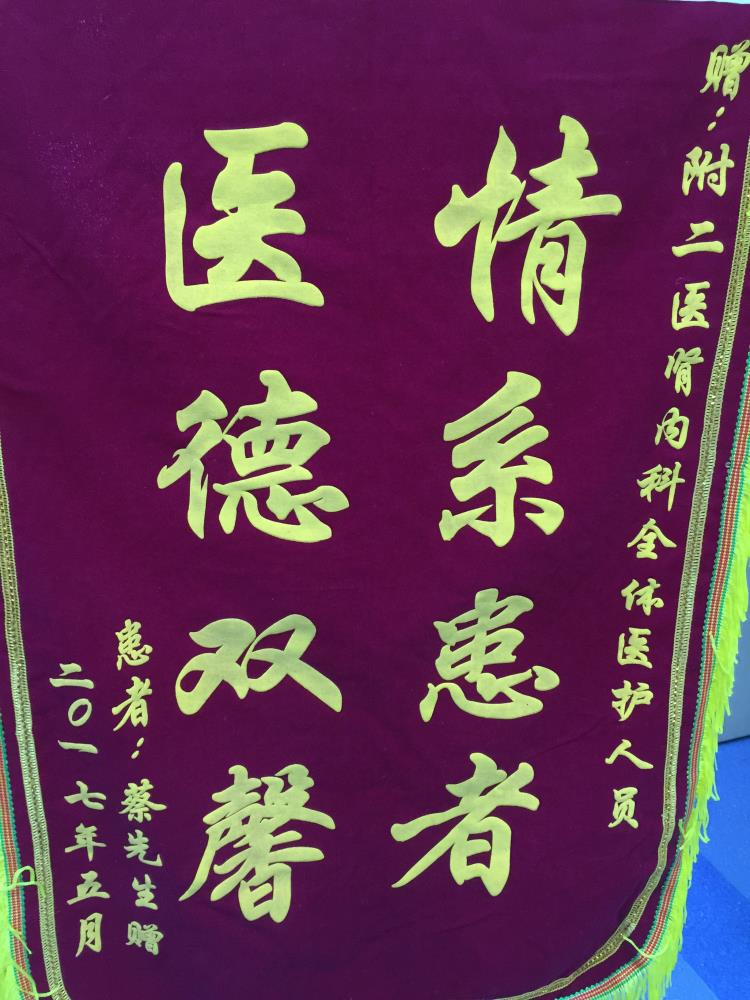 赠：附二医肾内科全体医护人员
情系患者
医德双馨
患者：蔡先生赠
二〇一七年五月